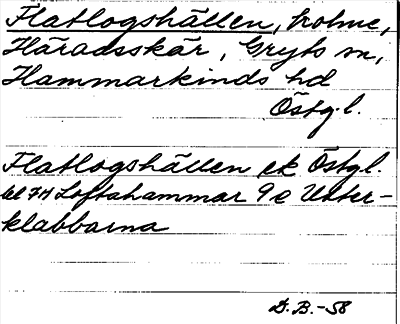 Flatlogshällen, holme,
Häradsskär, Gryts sn,
Hammarkinds hd
Östg.l.
Flatlogshällen ek Östg.l.
bl 74 Loftahammar 9 e Utter-
klabbarna
D.B.-58